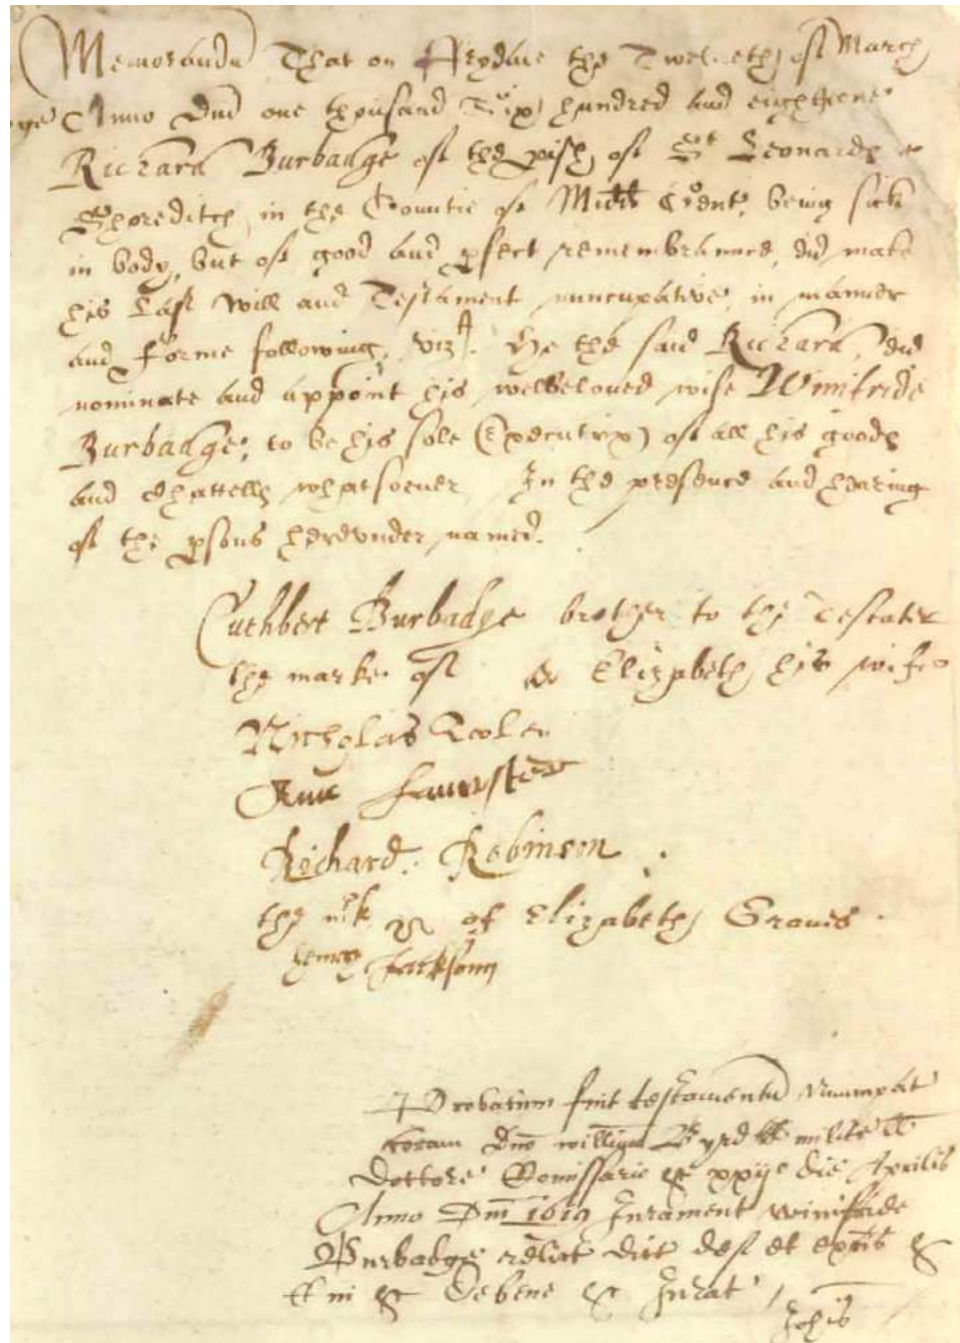 Memorandu That on Frydaie the Twelveth of March
Anno Dni one thousand Six hundred and eighteene
Richard Burbadge of the pish of St Leonards
Shoreditch in the Countie of Midd Gent, being sick
in body, but of good and pfect remembrannce, did make
his Last Will and Testament nuncupative, in manner
and forme following, vizt. He the said Richard, did
nominate and appoint his welbeloved wife Winifride
Burbadge, to be his sole Executrix of all his goods
and Chattells whatsoever In the presence and hearing
of the psons herevnder named.
Cuthbert Burbadge brother to the Testator
the marke of Elizabeth his wife
Nicholas Tooley
Ann Lancaster
Richard. Robinson.
the mrk of Elizabeth Graves.
henry Jacksonn
Probatum fuit testamentu Nuncupat
coram Dno Willimo Byrd milite
Doctore Comissario &c xxij die Aprilis
Anno Dni 1619 Jurament Winifride
Burbadge relict dict def et executs &c
&c De bene &c Jurat